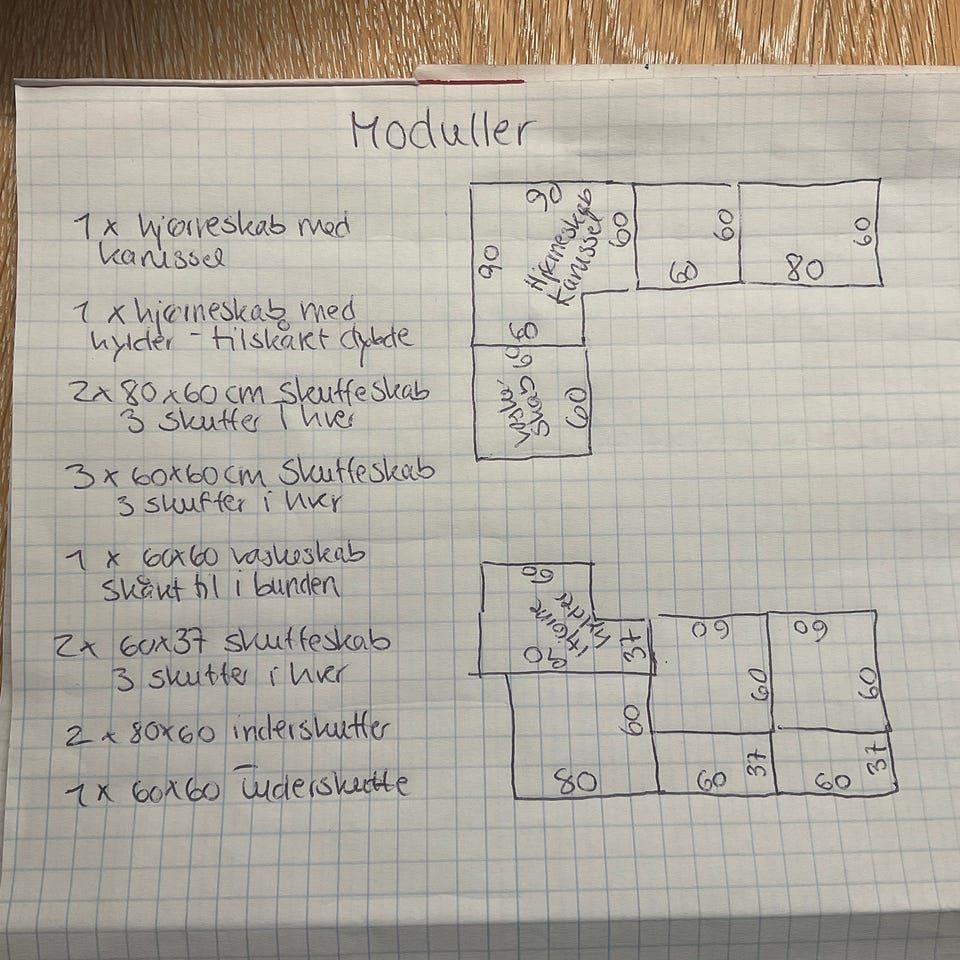 Moduller
1 x hjørneskab med
karussel
1 x hjørneskab med
hylder - tilskåret dybde
2 x 80x60 cm skuffeskab
3 skuffer i hver
3 x 60x60 cm skuffeskab
3 skuffer i hver
1 x 60x60 vaskeskab
skåret til i bunden
2 x 60x37 skuffeskab
3 skuffer i hver
2 x 80x60 inderskuffer
1 x 60x60 inderskuffe
90
90
Hjørneskab
karussel
60
60
60
60
80
60
60
Vaske
skab
60
60
60
Hjørne
hylder
90
37
60
60
60
60
60
80
60
37
60
37